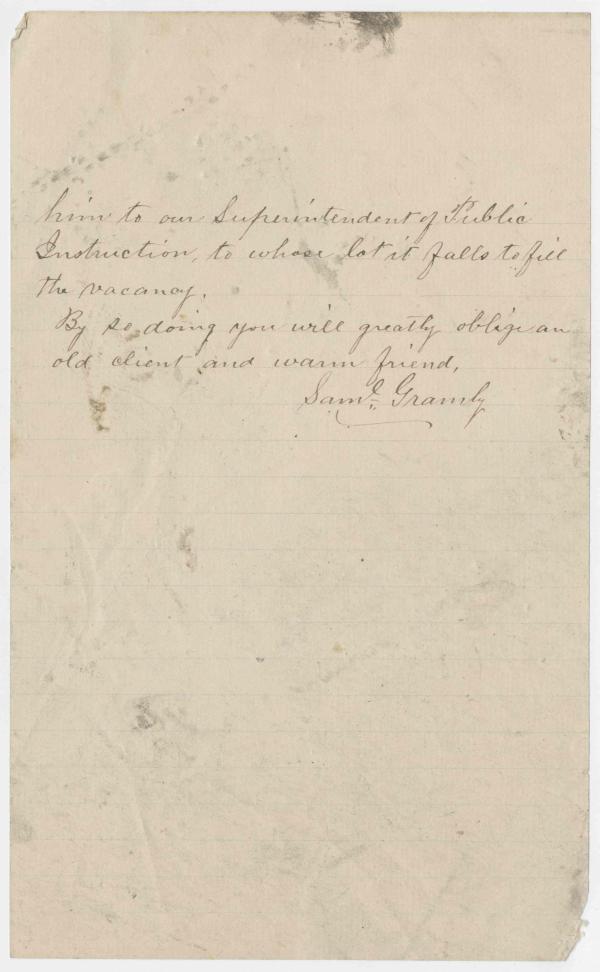 him to our Superintendent of Public
Instruction, to whose lot it falls to fill
the vacancy.
By so doing you will greatly oblige an
old client and warm friend,
Saml. Gramly